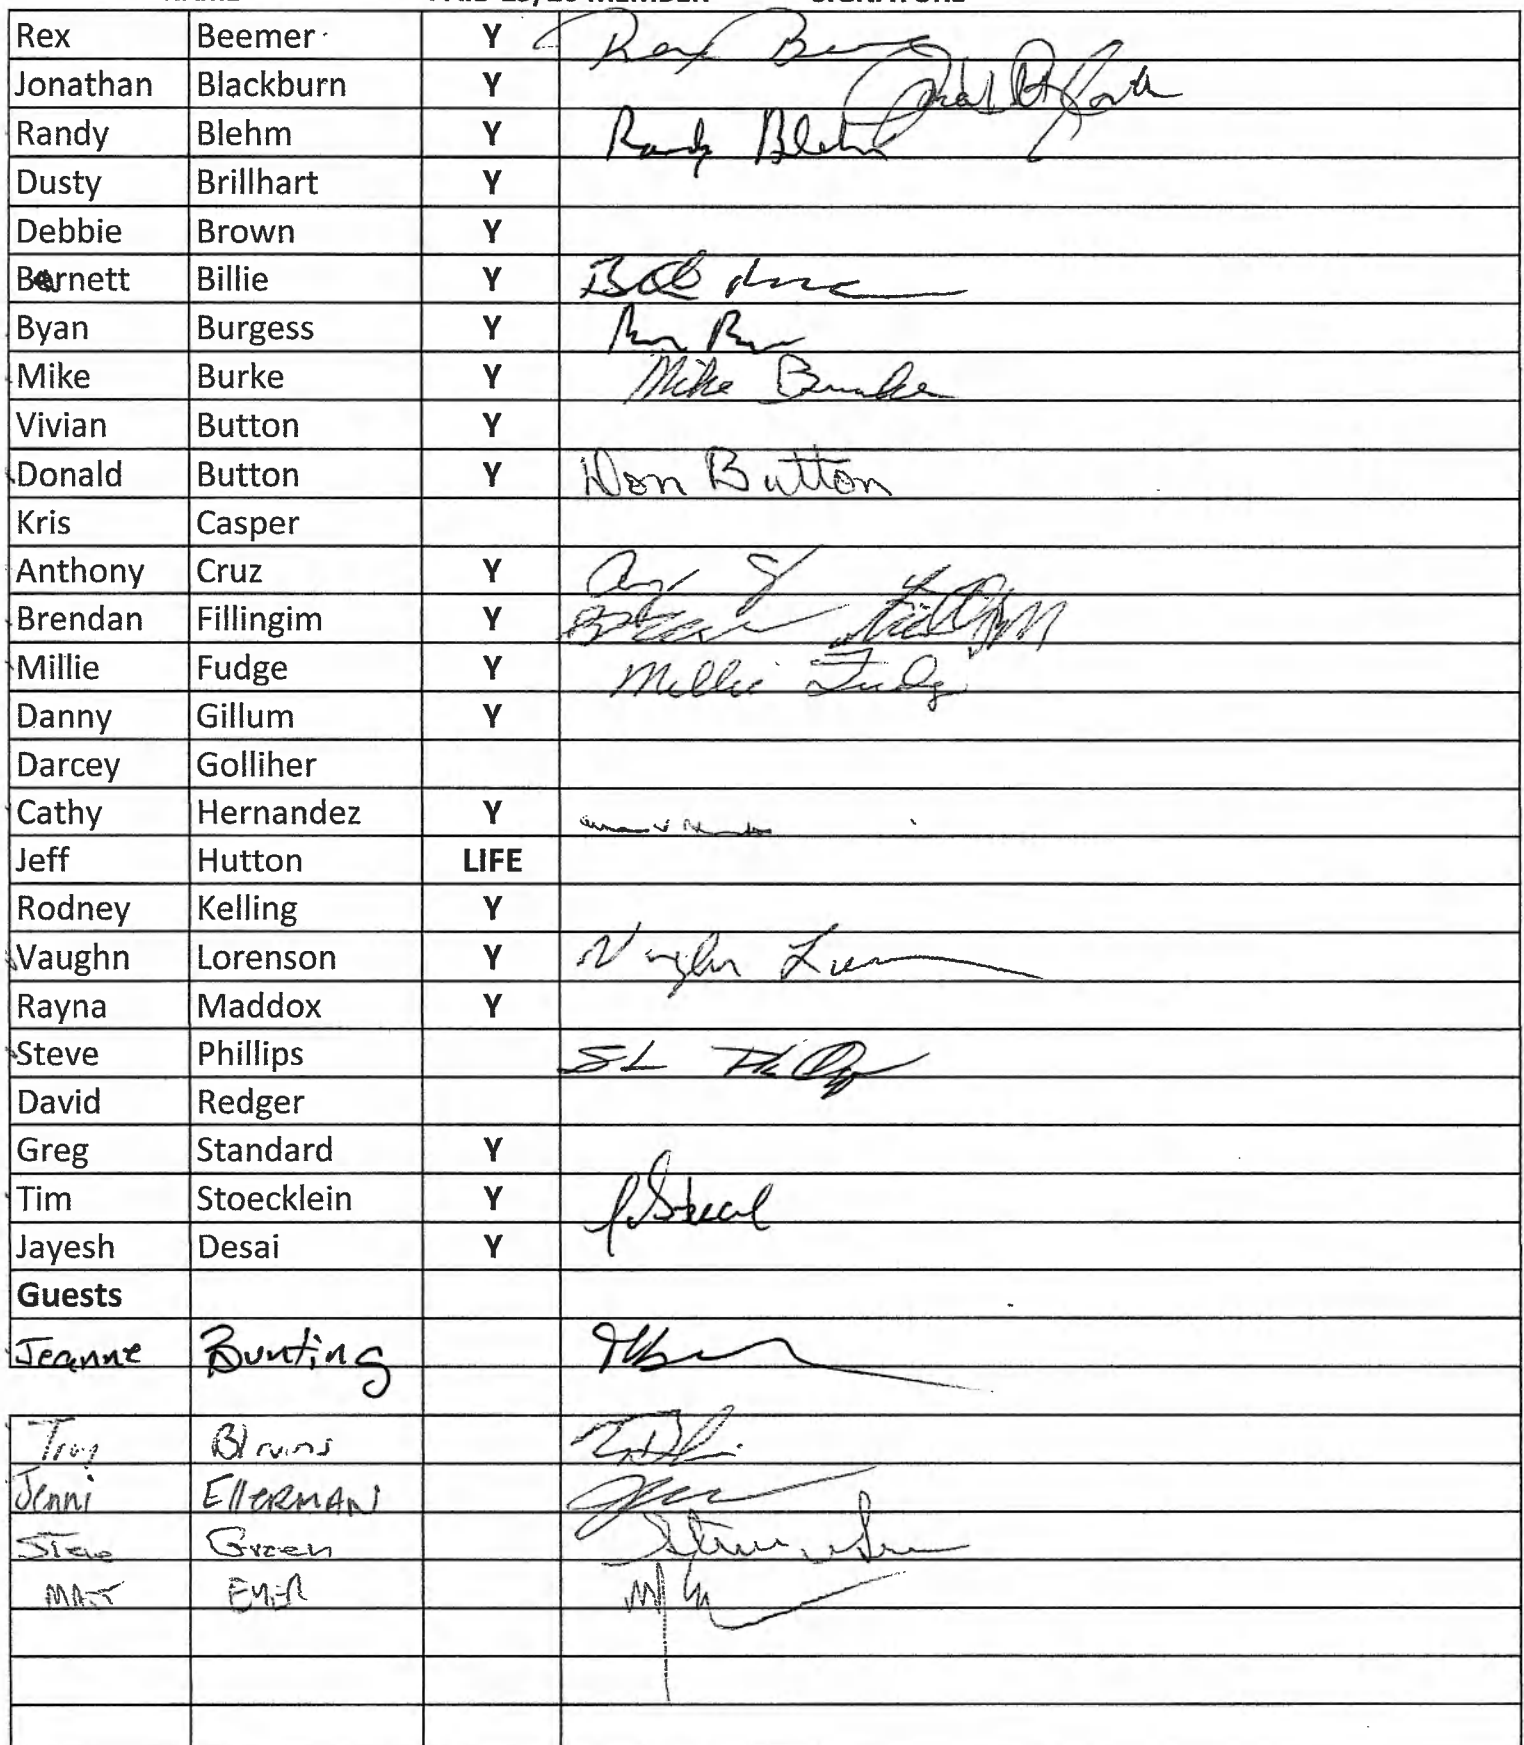 Rex Beemer Y Rex
Jonathan Blackburn Y
Randy Blehm Y Randy Blehm
Dusty Brillhart Y
Debbie Brown Y
Barnett Billie Y
Byan Burgess Y
Mike Burke Y Mike Burke
Vivian Button Y
Donald Button Y Don Button
Kris Casper
Anthony Cruz Y
Brendan Fillingim Y
Millie Fudge Y Millie Fudge
Danny Gillum Y
Darcey Golliher
Cathy Hernandez Y
Jeff Hutton LIFE
Rodney Kelling Y
Vaughn Lorenson Y Vaughn
Rayna Maddox Y
Steve Phillips
David Redger
Greg Standard Y
Tim Stoecklein Y
Jayesh Desai Y
Guests
Jeanne Bunting
Jenni EllERMANN
Steve Green
MATT